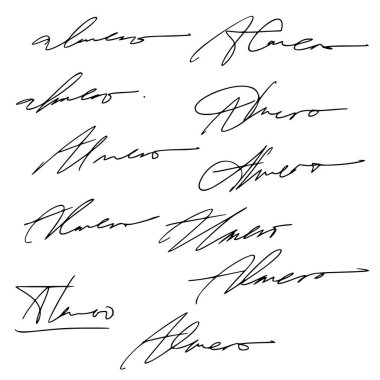 almero
Almero
almero.
Almero
Almero
Almero
Almero
Almero
Almero
Almero
Almero